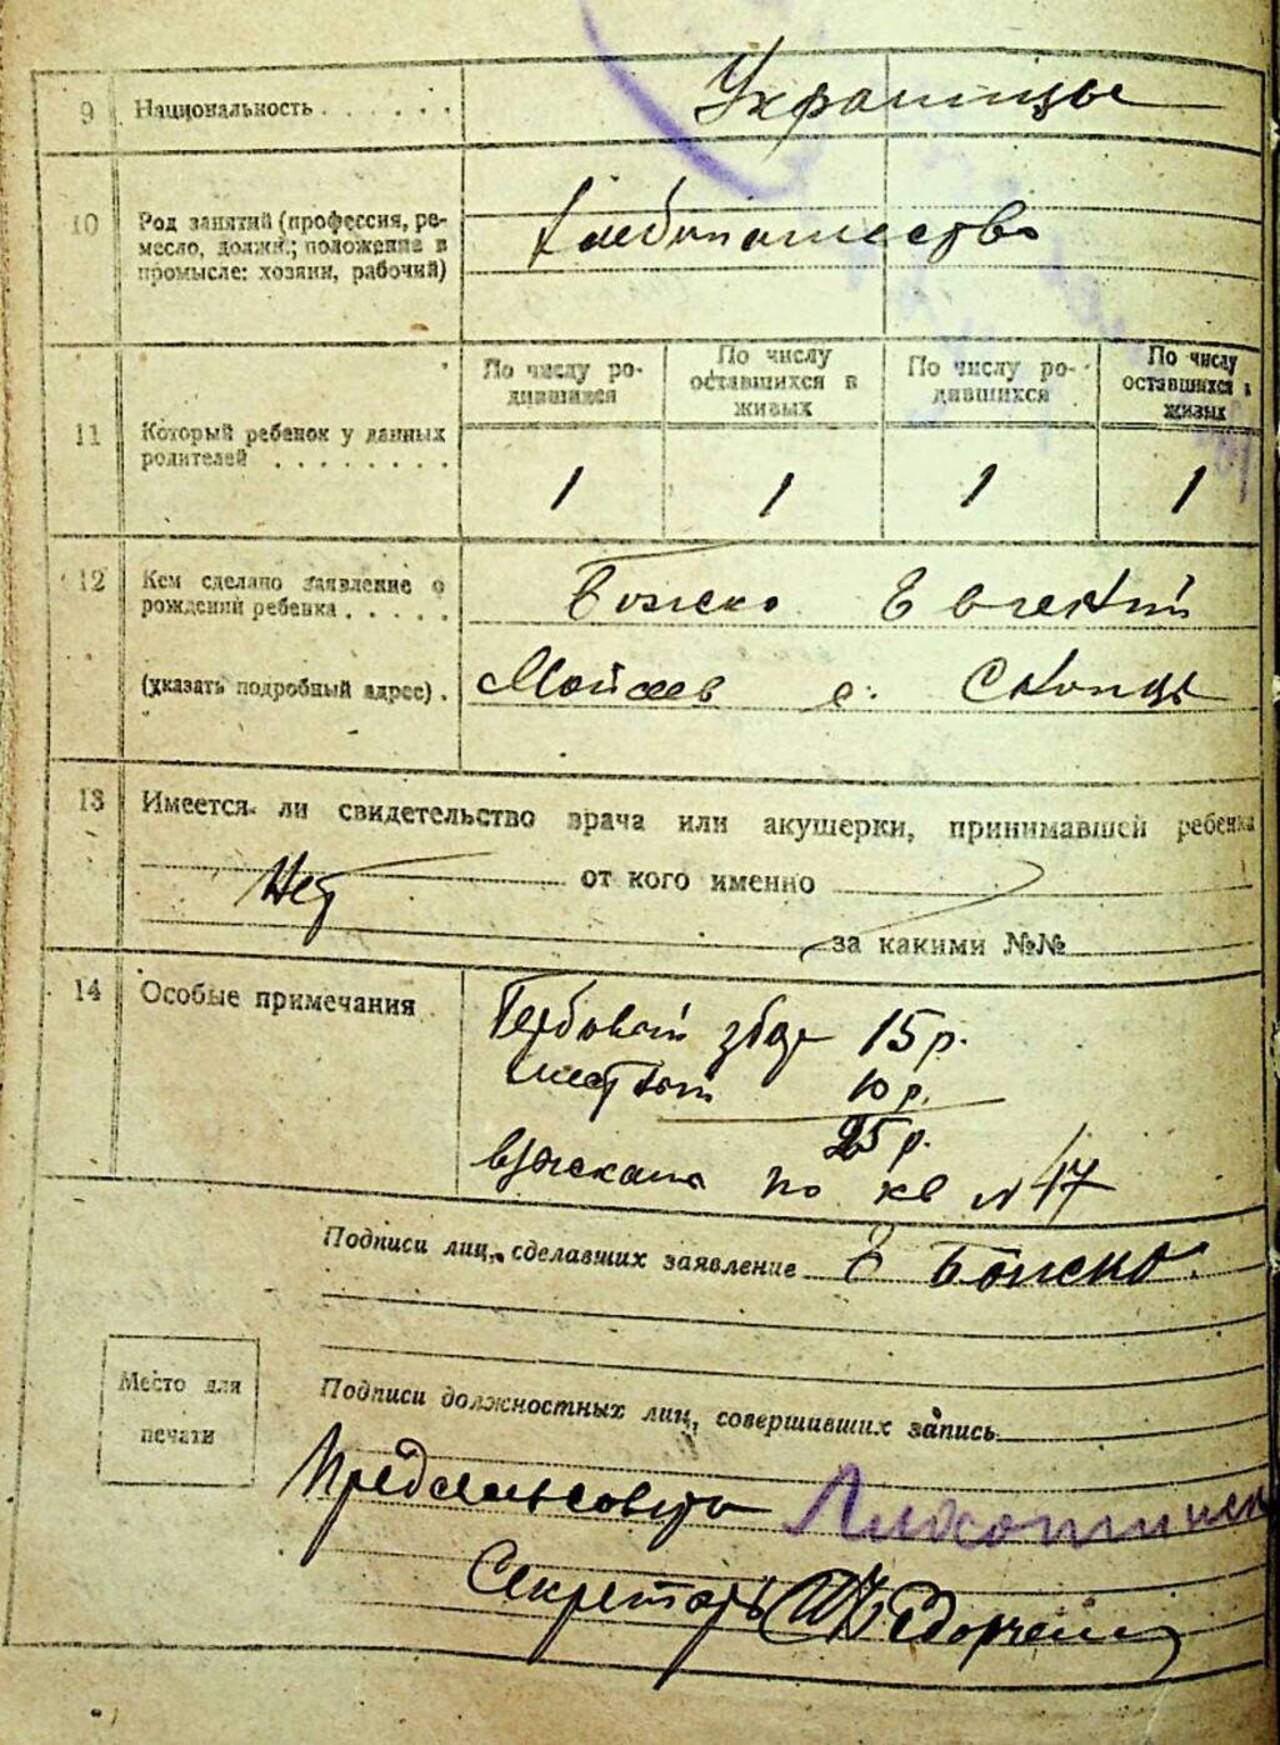 9 Национальность . . . . . . . Украинцы
10 Род занятий (профессия, ре-
месло, должн.; положение в
промысле: хозяин, рабочий)
Хлебопашество
По числу ро-
дившихся
По числу
оставшихся в
живых
По числу ро-
дившихся
По числу
оставшихся в
живых
11 Который ребенок у данных
родителей . . . . . . . .
1 1 1 1
12 Кем сделано заявление о
рождении ребенка . . . . .
Божко
(указать подробный адрес) .
Мойсеев с.
13 Имеется ли свидетельство врача или акушерки, принимавшей ребенка
Нет от кого именно
за какими №№
14 Особые примечания
Гербовый збор 15 р.
местный 10 р.
25 р.
взыскана по кв N 47
Подписи лиц, сделавших заявление Е Божко.
Место для
печати
Подписи должностных лиц, совершивших запись
Предсельсовета
Секретарь